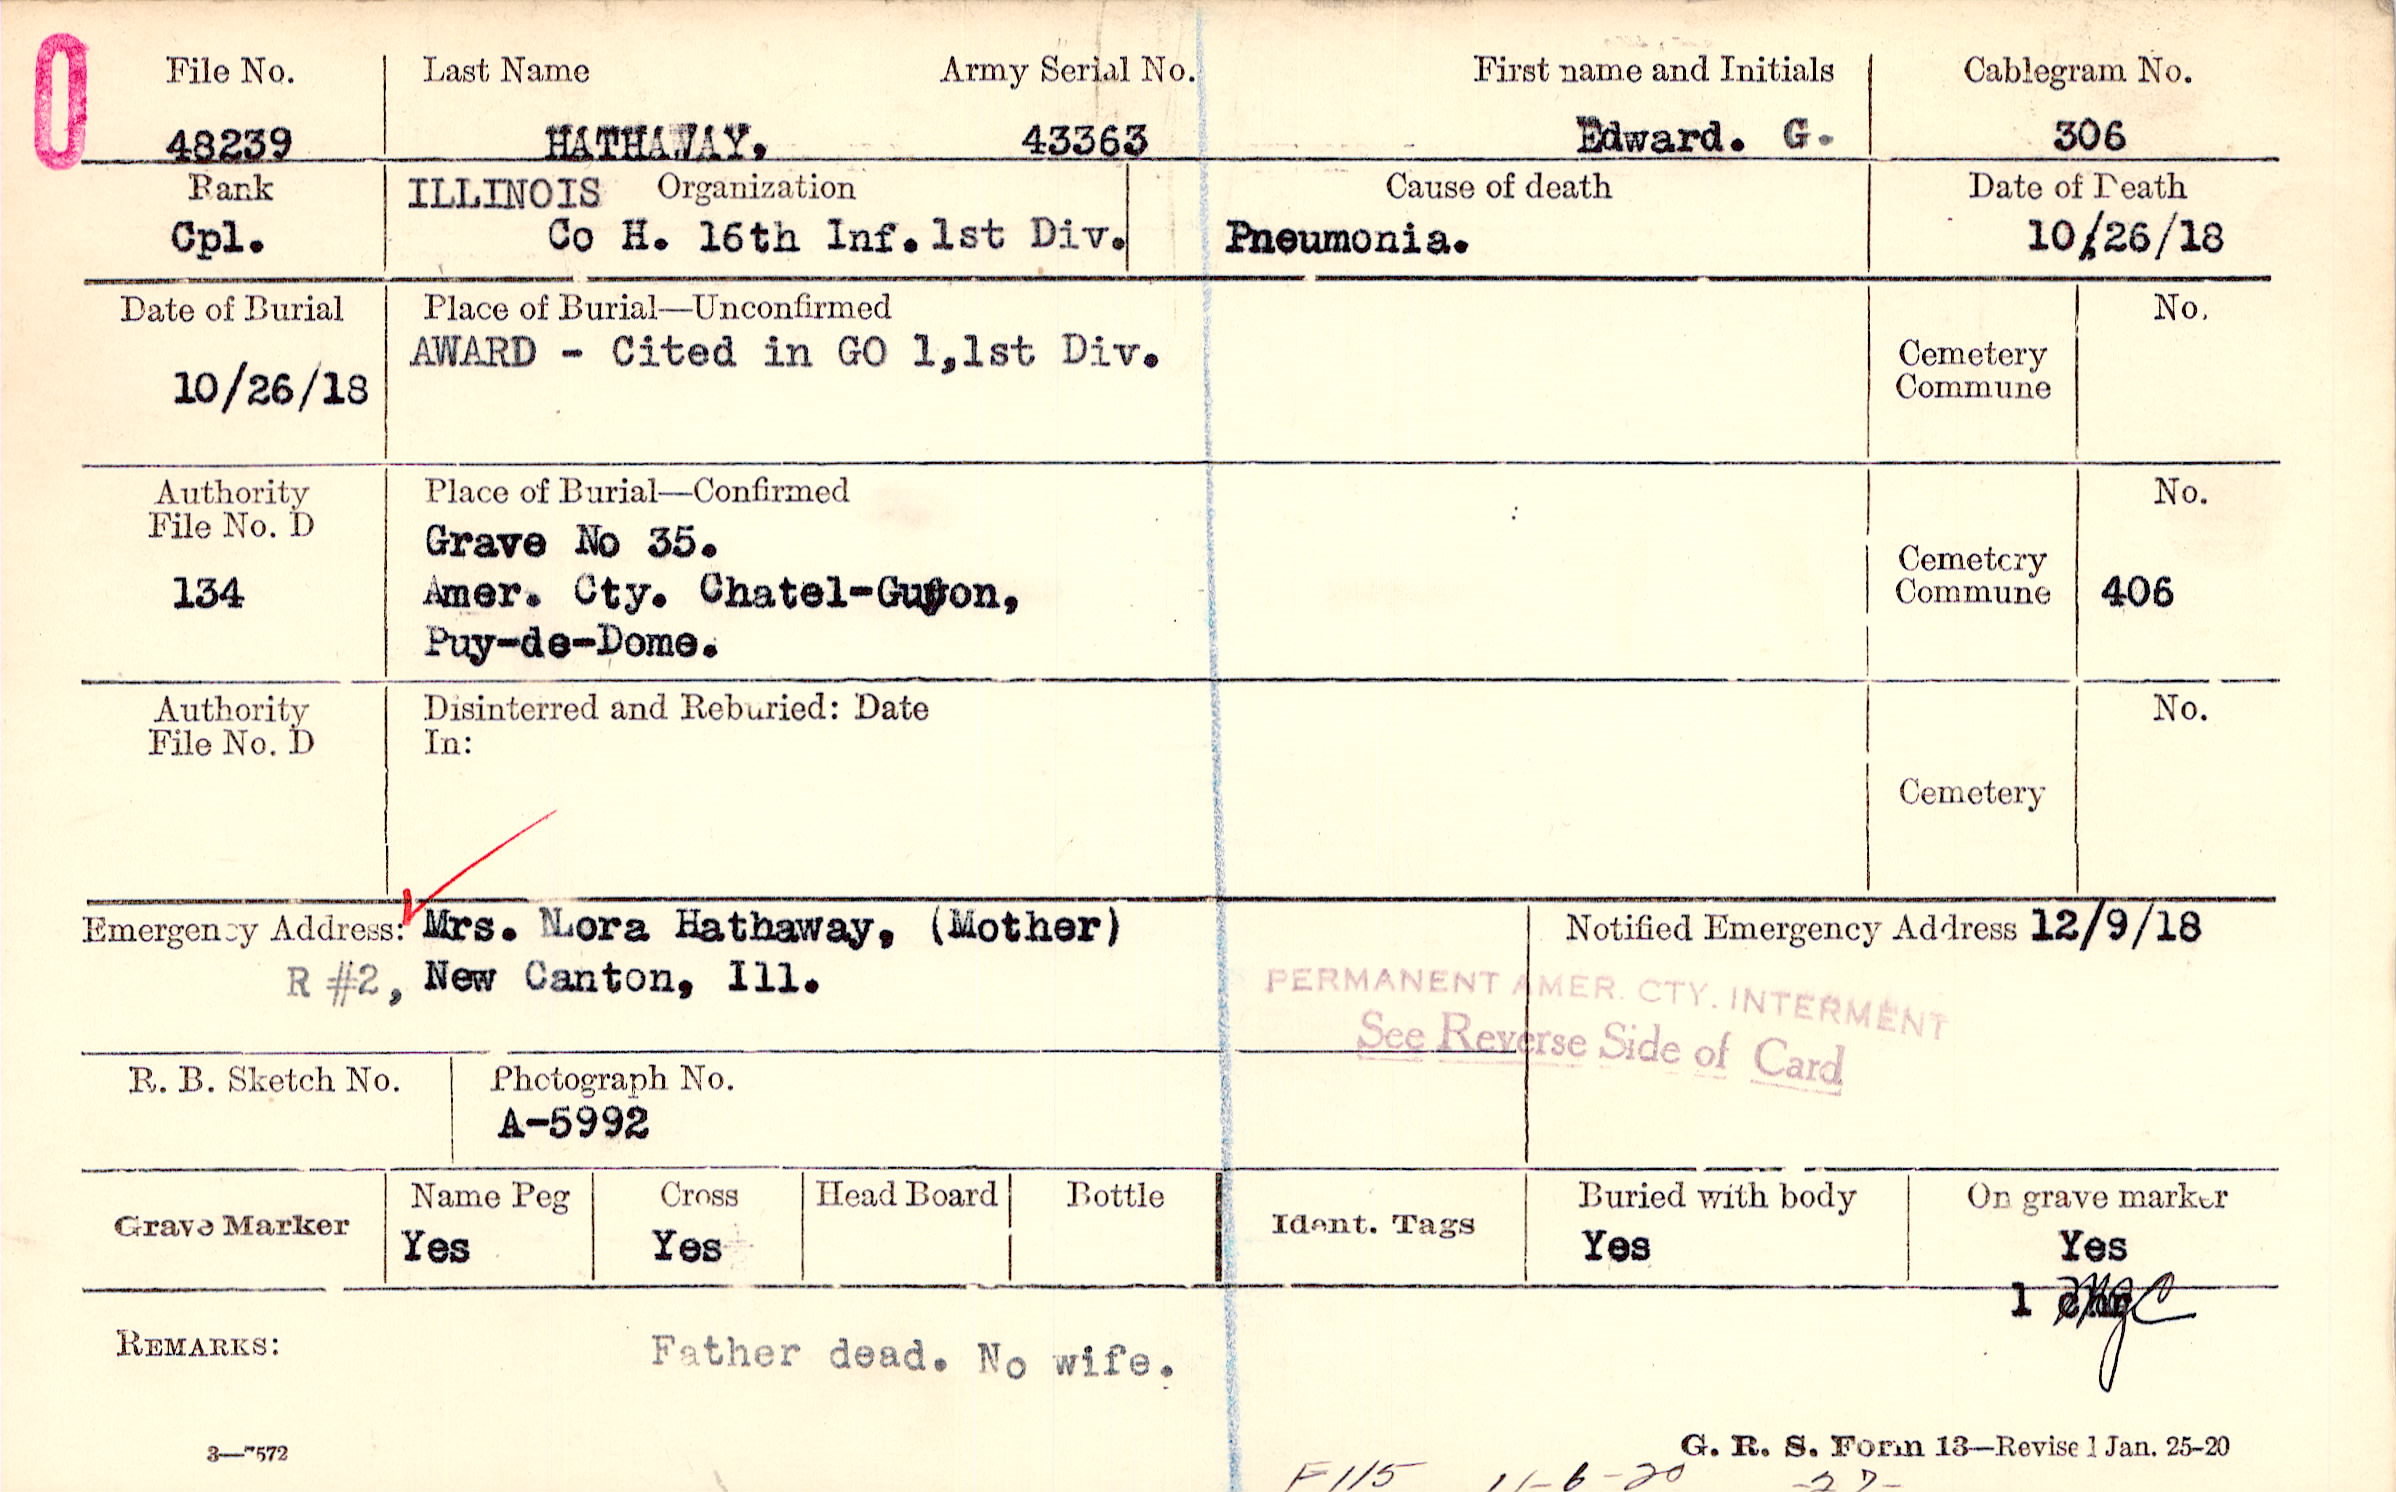 0
File No. Last Name Army Serial No. First name and Initials Cablegram No.
48239 HATHAWAY, 43363 Edward. G. 306
Rank ILLINOIS Organization Cause of death Date of Death
Cpl. Co H. 16th Inf. 1st Div. Pneumonia. 10/26/18
Date of Burial Place of Burial—Unconfirmed No.
AWARD - Cited in GO 1,1st Div. Cemetery
10/26/18 Commune
Authority Place of Burial—Confirmed No.
File No. D Grave No 35.
Cemetery
134 Amer. Cty. Chatel-Guyon, Commune 406
Puy-de-Dome.
Authority Disinterred and Reburied: Date No.
File No. D In:
Cemetery
Emergency Address: Mrs. Nora Hathaway, (Mother) Notified Emergency Address 12/9/18
R #2, New Canton, Ill.
PERMANENT AMER. CTY. INTERMENT
See Reverse Side of Card
R. B. Sketch No. Photograph No.
A-5992
Grave Marker Name Peg Cross Head Board Bottle Ident. Tags Buried with body On grave marker
Yes Yes Yes Yes
1
REMARKS: Father dead. No wife.
3—7572 G. R. S. Form 13—Revised Jan. 25-20
F115 11-6-20